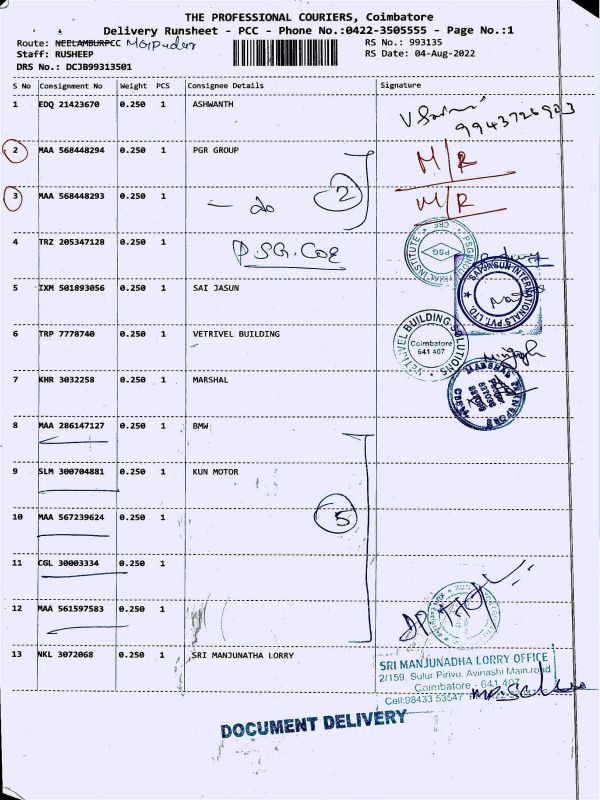 THE PROFESSIONAL COURIERS, Coimbatore
Delivery Runsheet - PCC - Phone No.:0422-3505555 - Page No.:1
Route: NEELAMBURPCC
RS No.: 993135
Staff: RUSHEEP
RS Date: 04-Aug-2022
DRS No.: DCJB99313501
S No Consignment No Weight PCS Consignee Details Signature
1 EDQ 21423670 0.250 1 ASHWANTH
9943726903
2 MAA 568448294 0.250 1 PGR GROUP M/R
3 MAA 568448293 0.250 1 - do 2 M/R
4 TRZ 205347128 0.250 1 P.SG.COE
PSG
5 IXM 501893056 0.250 1 SAI JASUN
RAPINSUN INTERNATIONALS PVT. LTD.
6 TRP 7778740 0.250 1 VETRIVEL BUILDING
VETRIVEL BUILDING SOLUTIONS
Coimbatore
641 407
7 KHR 3032258 0.250 1 MARSHAL
8 MAA 286147127 0.250 1 BMW
9 SLM 300704881 0.250 1 KUN MOTOR
10 MAA 567239624 0.250 1 5
11 CGL 30003334 0.250 1
12 MAA 561597583 0.250 1
13 NKL 3072068 0.250 1 SRI MANJUNATHA LORRY
SRI MANJUNADHA LORRY OFFICE
2/159, Sulur Pirivu, Avinashi Main road
Coimbatore - 641 407
Cell:98433 53547
DOCUMENT DELIVERY